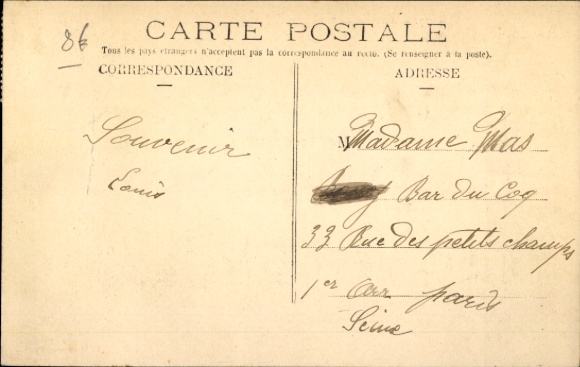 86
CARTE POSTALE
Tous les pays étrangers n'acceptent pas la correspondance au recto. (Se renseigner à la poste).
CORRESPONDANCE
ADRESSE
Souvenir
Louis
Madame Mas
Bar du Coq
33 Rue des petits champs
1er Arr paris
Seine